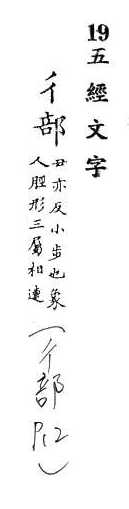 19五經文字
彳部
丑亦反小步也象
人脛形三屬相連
(彳部
P12)